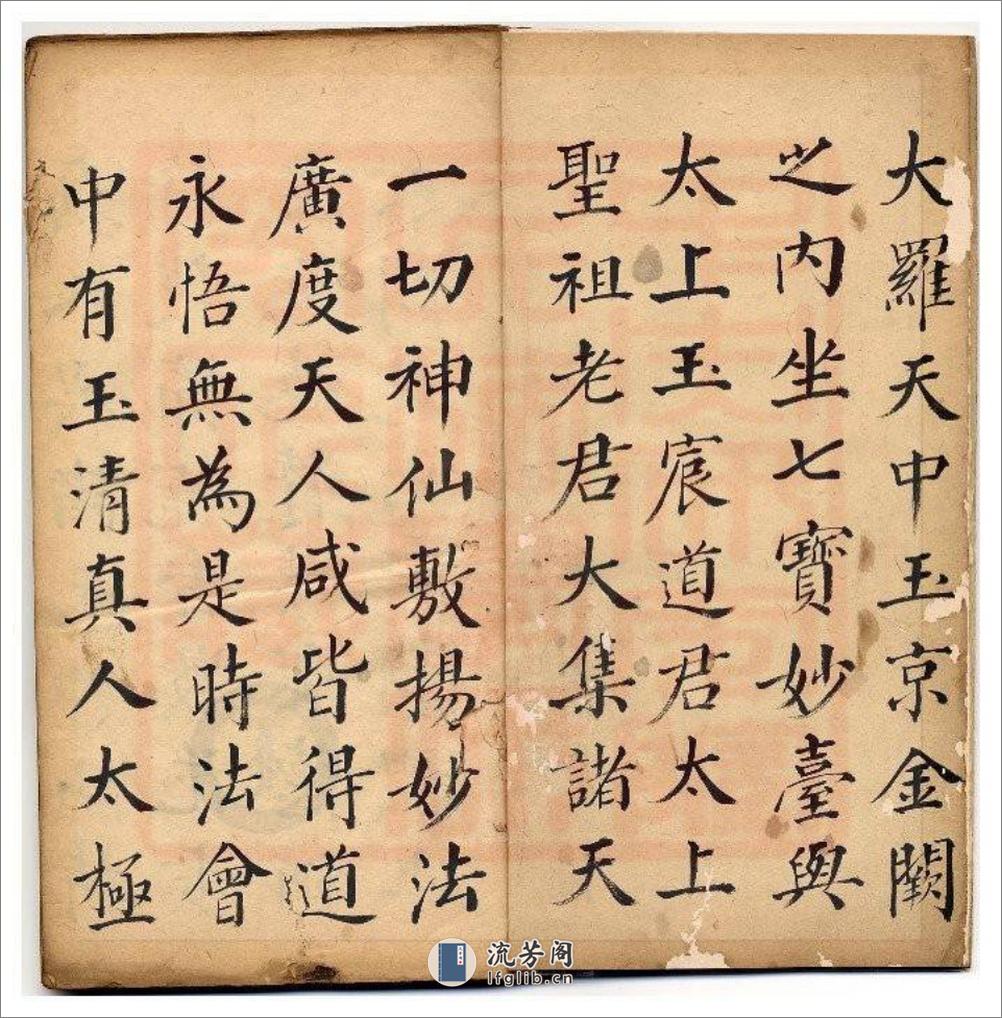 大羅天中玉京金闕
之内坐七寶妙臺與
太上玉宸道君太上
聖祖老君大集諸天
一切神仙敷揚妙法
廣度天人咸皆得道
永悟無為是時法會
中有玉清真人太極
流芳阁
lfglib.cn